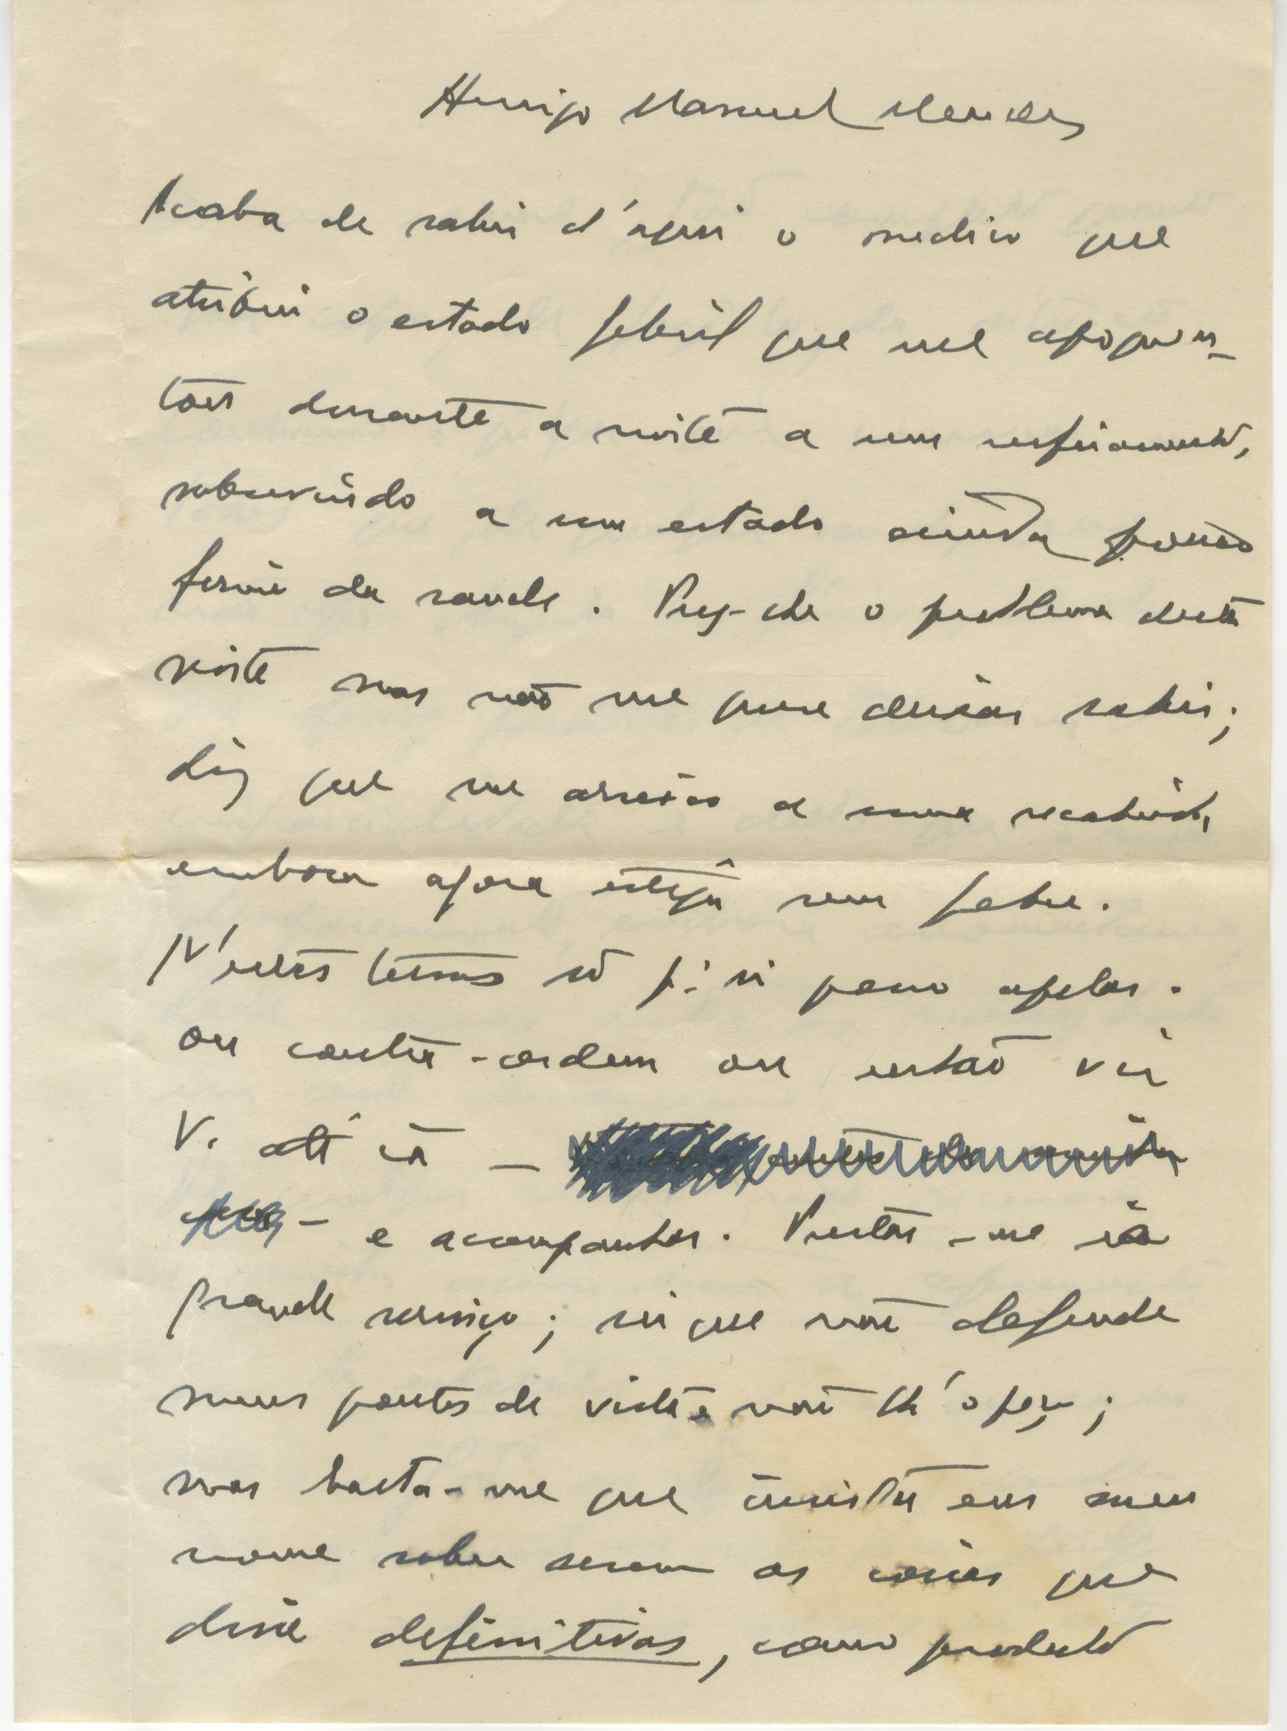 Amigo Manuel Mendes
Acaba de sahir d'aqui o medico que
atribui o estado febril que me apoquen-
tou durante a noite a um resfriamento,
sobrevindo a um estado ainda pouco
firme da saude. Puz-lhe o problema desta
noite mas não me quer deixar sahir;
diz que me arrisco a uma recahida,
embora agora esteja sem febre.
N'estes termos só p.ª si posso apelar.
ou contra-ordem ou então vir
V. até cá —
— e acompanhar. Prestar-me ia
grande serviço; sei que não defende
meus pontos de vista e não lh'o peço;
mas basta-me que insista em meu
nome sobre serem as coisas que
disse definitivas, como producto